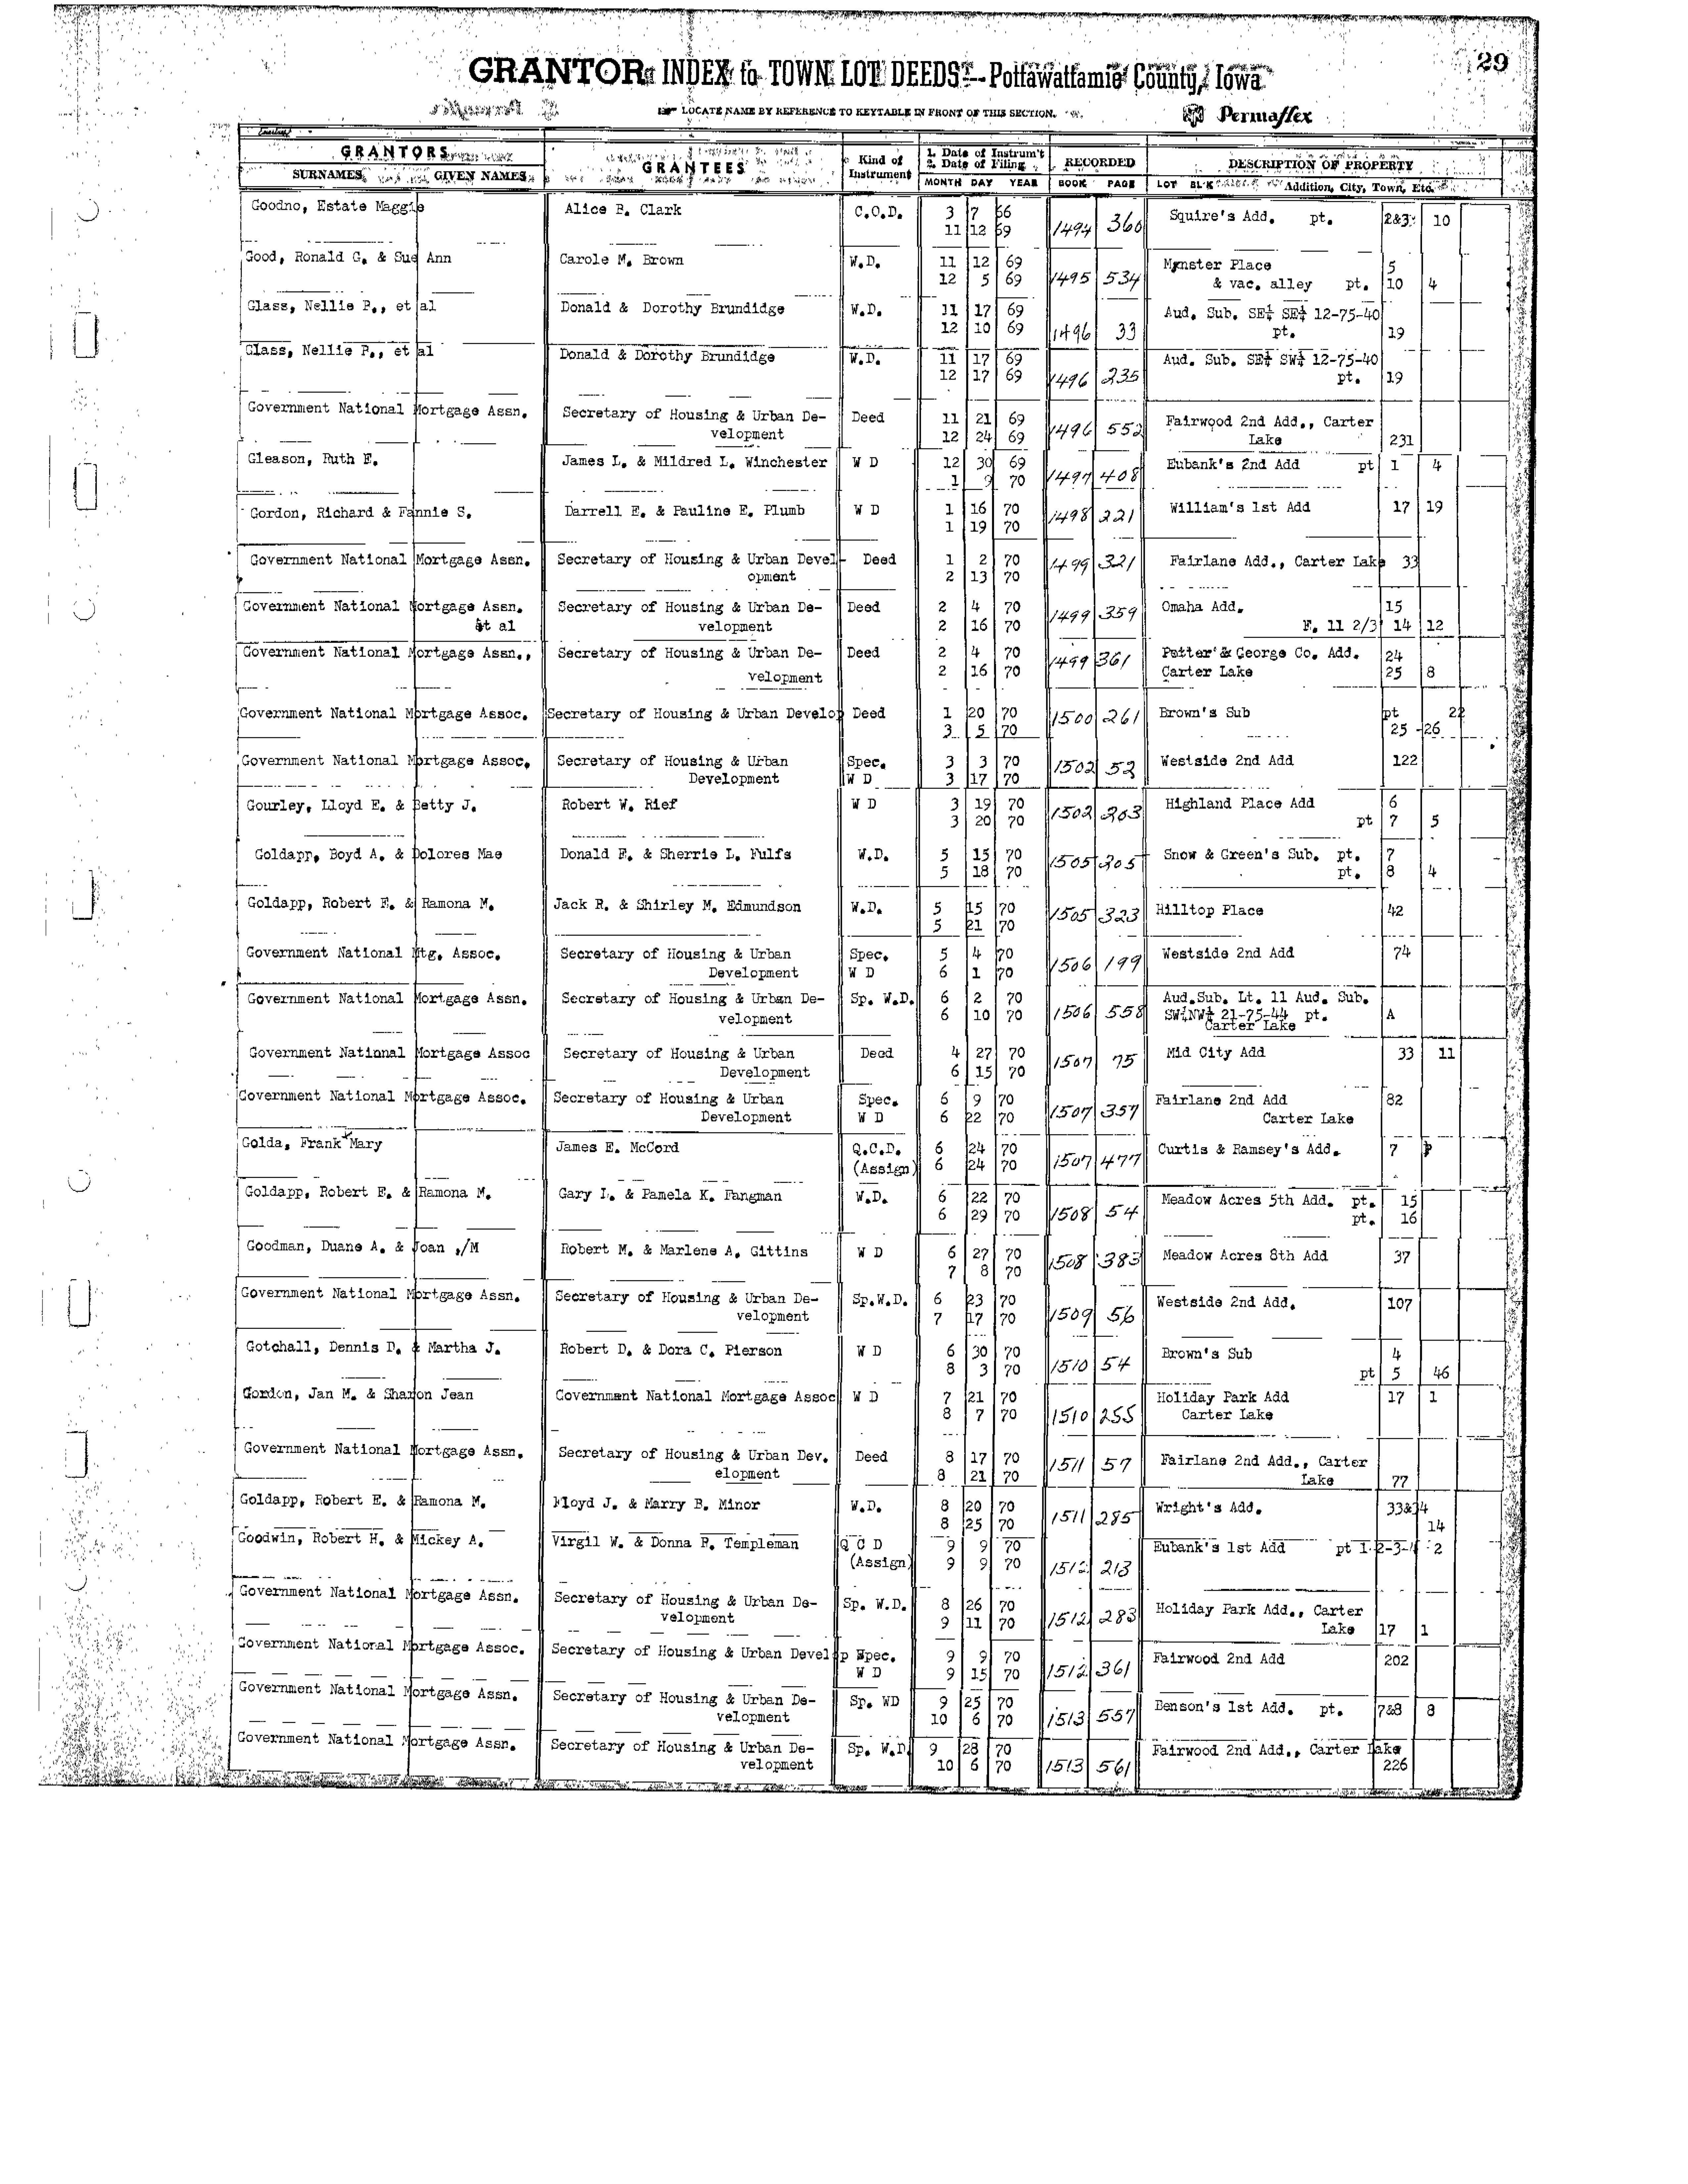 29
GRANTOR INDEX to TOWN LOT DEEDS -- Pottawattamie County, Iowa
LOCATE NAME BY REFERENCE TO KEYTABLE IN FRONT OF THIS SECTION. Permaflex
GRANTORS GRANTEES Kind of Instrument 1. Date of Instrum't 2. Date of Filing RECORDED DESCRIPTION OF PROPERTY
SURNAMES GIVEN NAMES MONTH DAY YEAR BOOK PAGE LOT BLK Addition, City, Town, Etc.
Goodno, Estate Maggie Alice B. Clark C.O.D. 3 7 66 1494 360 Squire's Add. pt. 2&3 10
11 12 69
Good, Ronald G. & Sue Ann Carole M. Brown W.D. 11 12 69 1495 534 Mynster Place 5
12 5 69 & vac. alley pt. 10 4
Glass, Nellie P., et al Donald & Dorothy Brundidge W.D. 11 17 69 1496 33 Aud. Sub. SE¼ SE¼ 12-75-40
12 10 69 pt. 19
Glass, Nellie P., et al Donald & Dorothy Brundidge W.D. 11 17 69 1496 235 Aud. Sub. SE¼ SW¼ 12-75-40
12 17 69 pt. 19
Government National Mortgage Assn. Secretary of Housing & Urban De- Deed 11 21 69 1496 552 Fairwood 2nd Add., Carter
velopment 12 24 69 Lake 231
Gleason, Ruth E. James L. & Mildred L. Winchester W D 12 30 69 1497 408 Eubank's 2nd Add pt 1 4
1 9 70
Gordon, Richard & Fannie S. Darrell E. & Pauline E. Plumb W D 1 16 70 1498 221 William's 1st Add 17 19
1 19 70
Government National Mortgage Assn. Secretary of Housing & Urban Devel- Deed 1 2 70 1499 321 Fairlane Add., Carter Lake 33
opment 2 13 70
Government National Mortgage Assn. Secretary of Housing & Urban De- Deed 2 4 70 1499 359 Omaha Add. 15
et al velopment 2 16 70 E. 11 2/3 14 12
Government National Mortgage Assn., Secretary of Housing & Urban De- Deed 2 4 70 1499 361 Potter & George Co. Add. 24
velopment 2 16 70 Carter Lake 25 8
Government National Mortgage Assoc. Secretary of Housing & Urban Develop Deed 1 20 70 1500 261 Brown's Sub pt 22
3 5 70 25 -26
Government National Mortgage Assoc. Secretary of Housing & Urban Spec. 3 3 70 1502 52 Westside 2nd Add 122
Development W D 3 17 70
Gourley, Lloyd E. & Betty J. Robert W. Rief W D 3 19 70 1502 203 Highland Place Add 6
3 20 70 pt 7 5
Goldapp, Boyd A. & Dolores Mae Donald F. & Sherrie L. Fulfs W.D. 5 15 70 1505 205 Snow & Green's Sub. pt. 7
5 18 70 pt. 8 4
Goldapp, Robert E. & Ramona M. Jack R. & Shirley M. Edmundson W.D. 5 15 70 1505 323 Hilltop Place 42
5 21 70
Government National Mtg. Assoc. Secretary of Housing & Urban Spec. 5 4 70 1506 199 Westside 2nd Add 74
Development W D 6 1 70
Government National Mortgage Assn. Secretary of Housing & Urban De- Sp. W.D. 6 2 70 1506 558 Aud.Sub. Lt. 11 Aud. Sub.
velopment 6 10 70 SW¼NW¼ 21-75-44 pt. A
Carter Lake
Government National Mortgage Assoc Secretary of Housing & Urban Deed 4 27 70 1507 75 Mid City Add 33 11
Development 6 15 70
Government National Mortgage Assoc. Secretary of Housing & Urban Spec. 6 9 70 1507 357 Fairlane 2nd Add 82
Development W D 6 22 70 Carter Lake
Golda, Frank Mary James E. McCord Q.C.D. 6 24 70 1507 477 Curtis & Ramsey's Add. 7
(Assign) 6 24 70
Goldapp, Robert E. & Ramona M. Gary L. & Pamela K. Fangman W.D. 6 22 70 1508 54 Meadow Acres 5th Add. pt. 15
6 29 70 pt. 16
Goodman, Duane A. & Joan ,/M Robert M. & Marlene A. Gittins W D 6 27 70 1508 383 Meadow Acres 8th Add 37
7 8 70
Government National Mortgage Assn. Secretary of Housing & Urban De- Sp.W.D. 6 23 70 1509 56 Westside 2nd Add. 107
velopment 7 17 70
Gotchall, Dennis D. & Martha J. Robert D. & Dora C. Pierson W D 6 30 70 1510 54 Brown's Sub 4
8 3 70 pt 5 46
Gordon, Jan M. & Sharon Jean Government National Mortgage Assoc W D 7 21 70 1510 255 Holiday Park Add 17 1
8 7 70 Carter Lake
Government National Mortgage Assn. Secretary of Housing & Urban Dev. Deed 8 17 70 1511 57 Fairlane 2nd Add., Carter
elopment 8 21 70 Lake 77
Goldapp, Robert E. & Ramona M. Floyd J. & Marry B. Minor W.D. 8 20 70 1511 285 Wright's Add. 33&34
8 25 70 14
Goodwin, Robert H. & Mickey A. Virgil W. & Donna R. Templeman Q C D 9 9 70 1512 213 Eubank's 1st Add pt 1-2-3-4 2
(Assign) 9 9 70
Government National Mortgage Assn. Secretary of Housing & Urban De- Sp. W.D. 8 26 70 1512 283 Holiday Park Add., Carter
velopment 9 11 70 Lake 17 1
Government National Mortgage Assoc. Secretary of Housing & Urban Develop Spec. 9 9 70 1512 361 Fairwood 2nd Add 202
W D 9 15 70
Government National Mortgage Assn. Secretary of Housing & Urban De- Sp. WD 9 25 70 1513 557 Benson's 1st Add. pt. 7&8 8
velopment 10 6 70
Government National Mortgage Assn. Secretary of Housing & Urban De- Sp. W.D 9 28 70 1513 561 Fairwood 2nd Add., Carter Lake
velopment 10 6 70 226